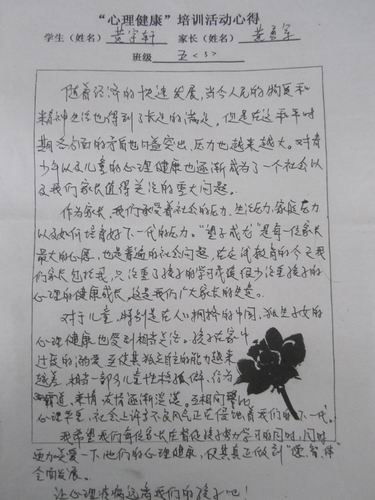 “心理健康”培训活动心得
学生（姓名） 黄宇轩 家长（姓名） 黄
班级 五<5>
随着经济的快速发展，当今人民的物质和
精神生活也得到了长足的满足。但是在这
期各方面的矛盾也日益突出，压力也越来越大。对青
少年以及儿童的心理健康也逐渐成为了一个社会以
及我们家长值得关注的重大问题。
作为家长，我们承受着社会的压力，生活压力，家庭压力
以及如何培育好下一代的压力。“望子成龙”是每一位家长
最大的心愿，也是普遍的社会问题，在应试教育的今天我
们家长包括我，只注重了孩子的学习成绩但少注重孩子的
心理的健康成长，这是我们广大家长的失落。
对于儿童，特别是在人口拥挤的中国，独生子女的
心理健康也受到相当关注。孩子在家中
过度的溺爱，至使其独立自主的能力越来
越差，相当一部分儿童性格孤僻，信为
亲情友情逐渐淡漠。互相间攀比
心理严重，社会上许多不良风气正在侵蚀着我们的下一代。
我希望我们每位家长在督促孩子努力学习的同时，同时
也要一下他们的心理健康，使其真正做到“德、智、体”
全面发展。
让心理疾病远离我们的孩子吧！